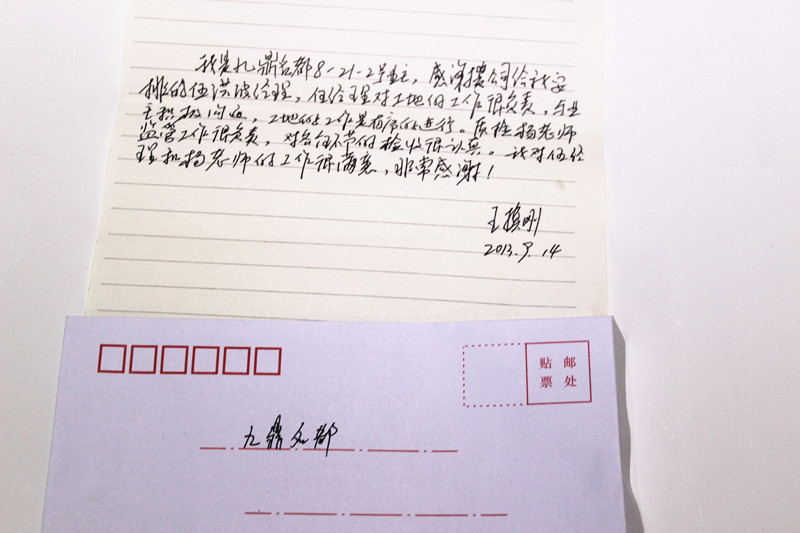 我是九鼎名都8-21-2业主，感谢贵公司给我安
排的伍洪波经理，伍经理对工地的工作很负责，与业
主积极沟通，工地的工作是有序的进行。质检杨老师
监管工作很负责，对各个环节的检收很认真。我对伍经
理和杨老师的工作很满意，非常感谢！
王
2013.9.14
贴 邮
票 处
九鼎名都